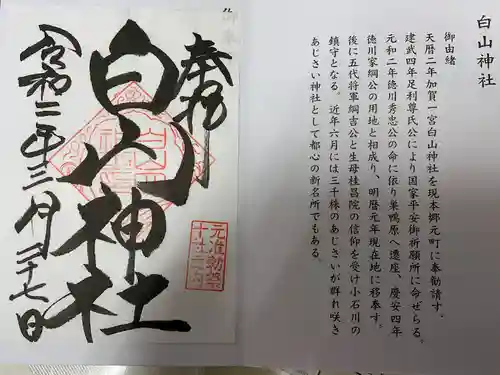 白山神社
御由緒
天暦二年加賀一宮白山神社を現本郷元町に奉勧請す。
建武四年足利尊氏公により国家平安御祈願所に命ぜらる。
元和二年徳川秀忠公の命に依り巣鴨原へ遷座、慶安四年
徳川家綱公の用地と相成り、明暦元年現在地に移奉す。
後に五代将軍綱吉公と生母桂昌院の信仰を受け小石川の
鎮守となる。近年六月には三千株のあじさいが群れ咲き
あじさい神社として都心の新名所でもある。
奉拝
白山神社
令和二年三月二十七日
元准勅祭
十社之内